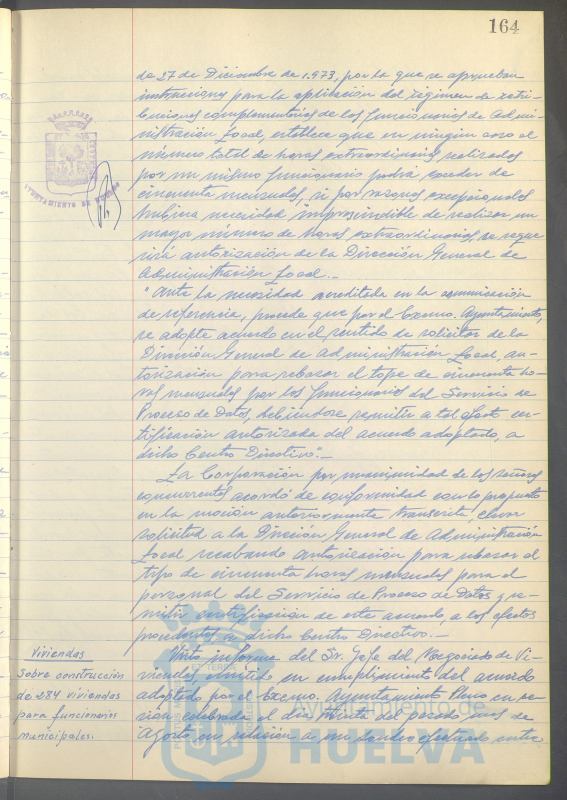 164
de 27 de Diciembre de 1.973, por la que se aprueban
instrucciones para la aplicación del régimen de retri-
buciones complementarias de los funcionarios de Admi-
nistración Local, establece que en ningún caso el
número total de horas extraordinarias realizadas
por un mismo funcionario podrá exceder de
cincuenta mensuales, si por razones excepcionales
hubiera necesidad imprescindible de realizar un
mayor número de horas extraordinarias, se reque-
rirá autorización de la Dirección General de
Administración Local.-
"Ante la necesidad acreditada en la comunicación
de referencia, procede que por el Excmo. Ayuntamiento,
se adopte acuerdo en el sentido de solicitar de la
Dirección General de Administración Local, au-
torización para rebasar el tope de cincuenta ho-
ras mensuales por los funcionarios del Servicio de
Proceso de Datos, debiéndose remitir a tal efecto cer-
tificación autorizada del acuerdo adoptado, a
dicho Centro Directivo".-
La Corporación por unanimidad de los señores
concurrentes acordó de conformidad con lo propuesto
en la moción anteriormente transcrita, elevar
solicitud a la Dirección General de Administración
Local recabando autorización para rebasar el
tipo de cincuenta horas mensuales para el
personal del Servicio de Proceso de Datos y re-
mitir certificación de este acuerdo, a los efectos
procedentes, a dicho Centro Directivo.-
Viviendas
Sobre construcción
de 284 viviendas
para funcionarios
municipales.
Visto informe del Sr. Jefe del Negociado de Vi-
viendas, emitido en cumplimiento del acuerdo
adoptado por el Excmo. Ayuntamiento Pleno en se-
sión celebrada el día treinta del pasado mes de
Agosto en relación a un sondeo efectuado entre
AYUNTAMIENTO DE HUELVA
Ayuntamiento de
HUELVA